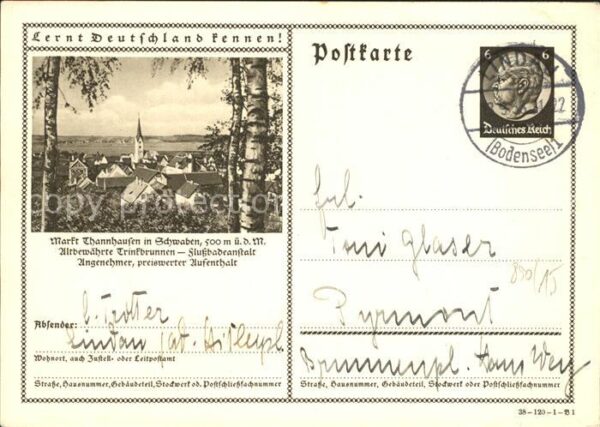 Lernt Deutschland kennen!
Markt Thannhausen in Schwaben, 500 m ü. d. M.
Altbewährte Trinkbrunnen — Flußbadeanstalt
Angenehmer, preiswerter Aufenthalt
Absender:
Lindau
Wohnort, auch Zustell- oder Leitpostamt
Straße, Hausnummer, Gebäudeteil, Stockwerk od. Postschließfachnummer
Postkarte
6 6
Deutsches Reich
LINDAU
(Bodensee) 1
Frl.
Toni Glaser
Pyrmont
Brunnenpl. Haus
Straße, Hausnummer, Gebäudeteil, Stockwerk oder Postschließfachnummer
38-120-1-B1